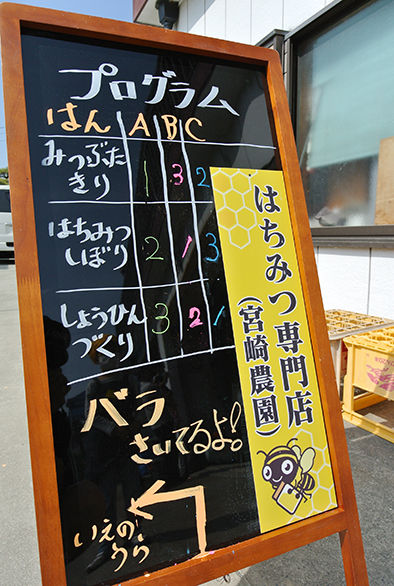 プログラム
はん A B C
みつぶた
きり 1 3 2
はちみつ
しぼり 2 1 3
しょうひん
づくり 3 2 1
バラ
さいてるよ!
いえの
うら
はちみつ専門店
(宮崎農園)